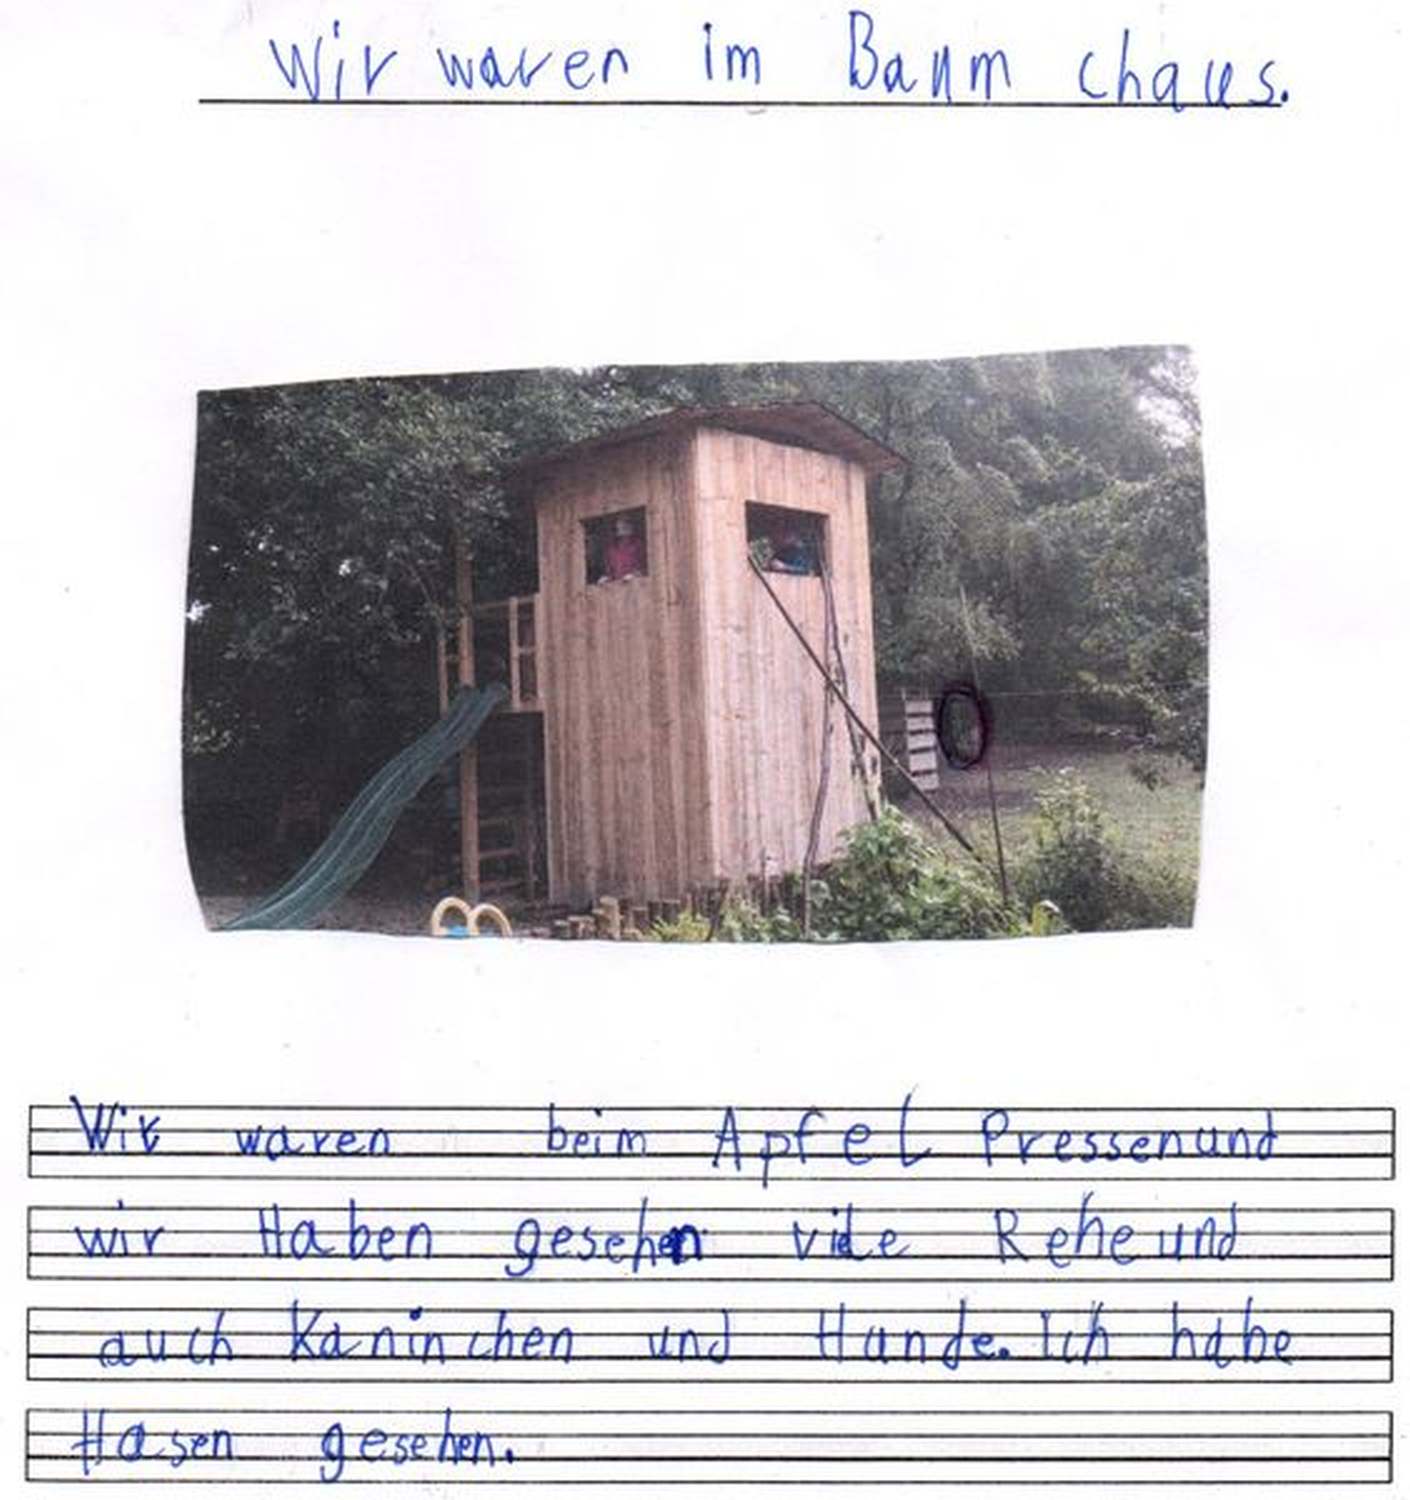 Wir waren im Baum chaus.
Wir waren beim Apfel Pressenund
wir Haben gesehen viele Rehe und
auch Kaninchen und Hunde. Ich habe
Hasen gesehen.